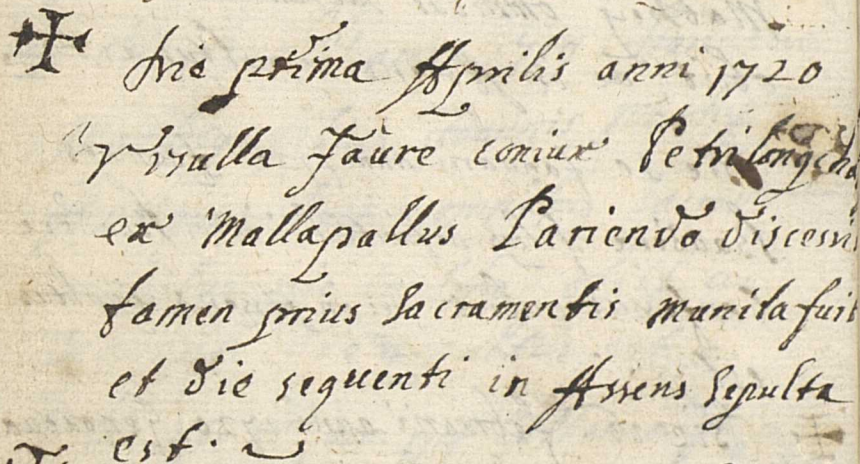 Die prima Aprilis anni 1720
Vrsulla Jaûre coniux Petri longcha
ex Mallapallus Pariendo discessit
tamen prius sacramentis munita fuit
et die sequenti in Assens sepulta
est.